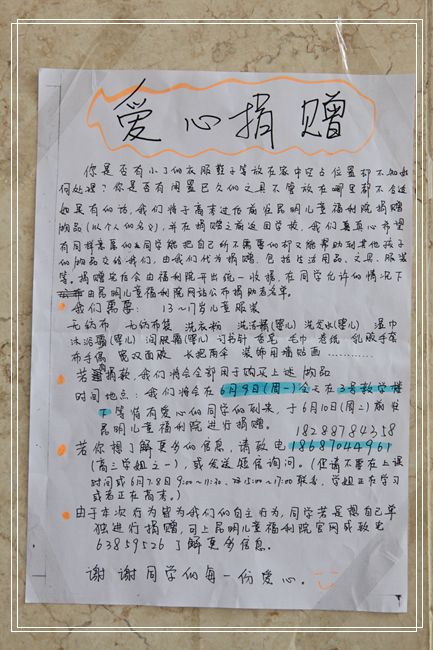 爱心捐赠
你是否有小了的衣服鞋子等放在家中空占位置却不知如
何处理？你是否有闲置已久的文具不管放在哪里都不合适
如果有的话，我们将于高考过后前往昆明儿童福利院捐赠
物品(以个人的名义)，并在捐赠之前返回学校，我们真心希望
有同样意愿的同学能把自己所不需要的却又能帮助到其他孩子
的物品交给我们，由我们代为捐赠．包括生活用品、文具、服装
等。捐赠完后会由福利院开出统一收据，在同学允许的情况下
由昆明儿童福利院网站公布捐助者名单。
我们需要： 13~17岁儿童服装
无纺布 无纺布袋 洗衣粉 洗洁精(婴儿) 洗发水(婴儿) 湿巾
沐浴露(婴儿) 润肤霜(婴儿) 订书针 香皂 毛巾 卷纸 乳胶手套
布手偶 宽双面胶 长把雨伞 装饰用墙贴画…………
若捐款，我们将会全部用于购买上述物品
时间地点：我们将会在6月9日(周一)全天在3号教学楼
下等待有爱心的同学的到来，于6月10日(周二)前往
昆明儿童福利院进行捐赠。
18288784358
若你想了解更多的信息，请致电18687044961
(高三学姐之一)，或发送短信询问。(但请不要在上课
时间或6月7.8日9:00~11:30、15:00~17:00联系，学姐正在学习
或者正在高考。)
由于本次行为皆为我们的自主行为，同学若是想自己单
独进行捐赠，可上昆明儿童福利院官网或致电
63859526了解更多信息。
谢谢同学们每一份爱心。